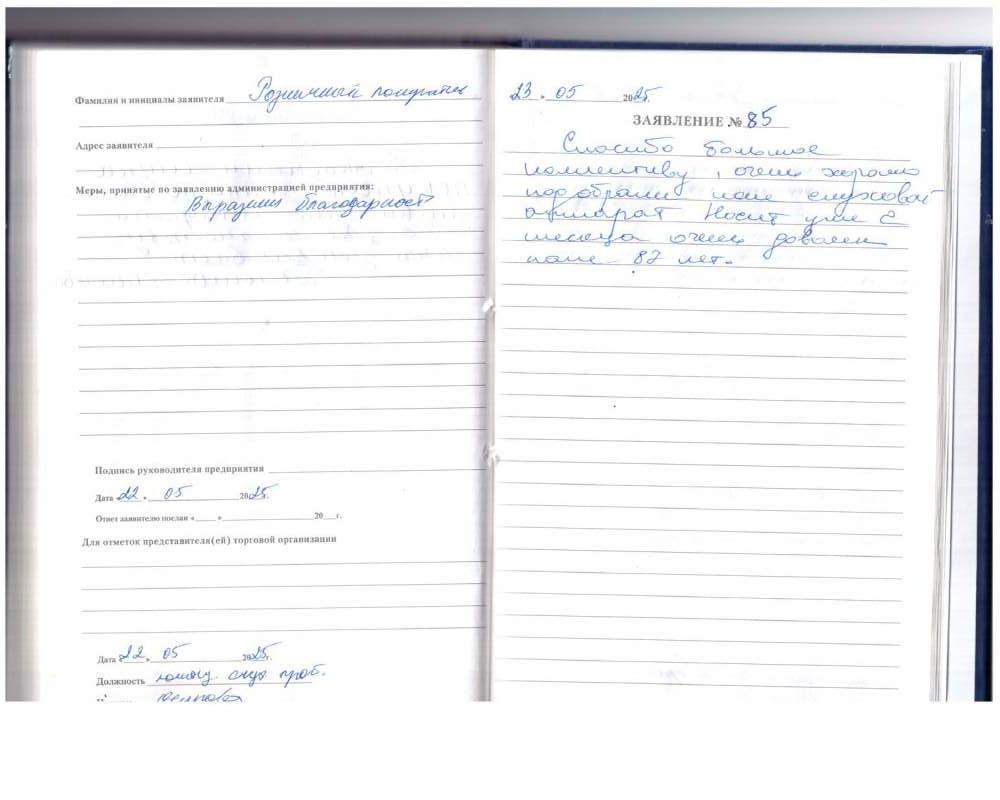 Фамилия и инициалы заявителя Розничный покупатель
Адрес заявителя
Меры, принятые по заявлению администрацией предприятия:
Выразили благодарность
Подпись руководителя предприятия
Дата 22 » 05 2025г.
Ответ заявителю послан « » 20 г.
Для отметок представителя(ей) торговой организации
Дата «22 » 05 2025г.
Должность
23 » 05 2025г.
ЗАЯВЛЕНИЕ № 85
Спасибо большое
коллективу, очень хорошо
подобрали папе слуховой
аппарат Носит уже 2
месяца очень доволен
папе 82 лет.